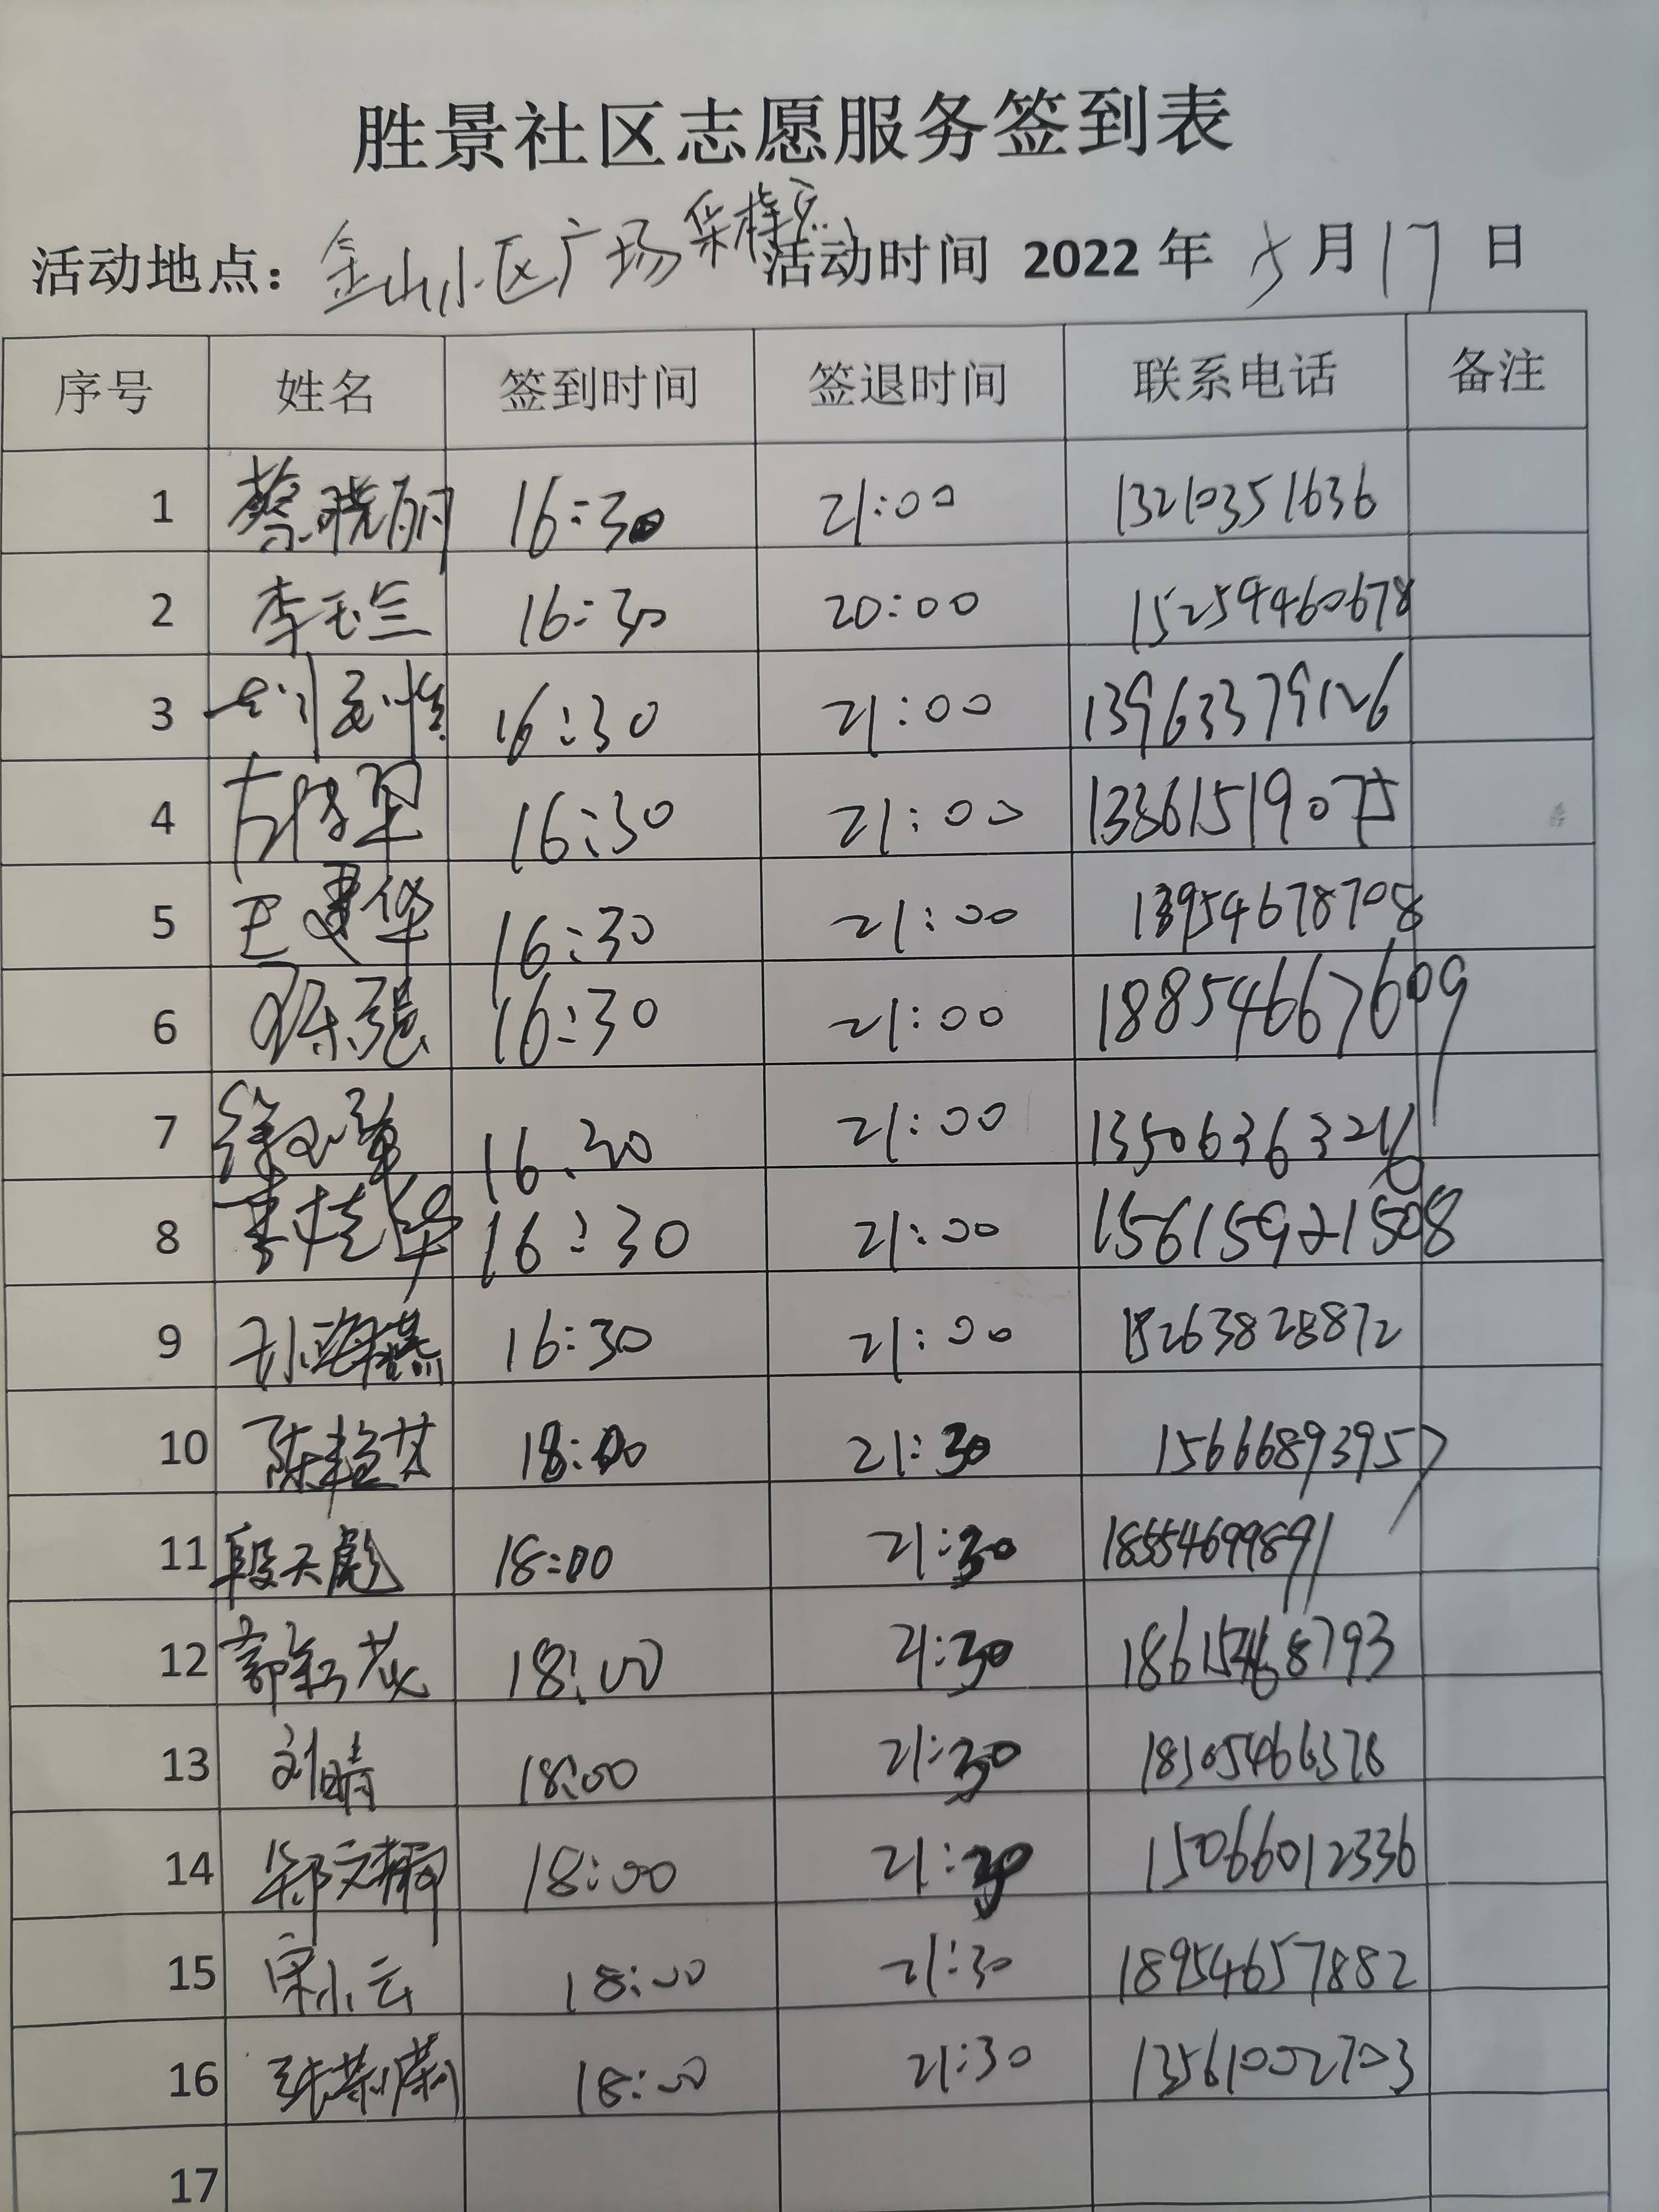 胜景社区志愿服务签到表
活动地点：金山小区广场采样点 活动时间 2022 年 5 月 17 日
序号 姓名 签到时间 签退时间 联系电话 备注
1 蔡晓丽 16:30 21:00 13210351636
2 李玉兰 16:30 20:00 15259460678
3 16:30 21:00 13963379126
4 16:30 21:00 13361519075
5 王建华 16:30 21:00 13954678708
6 陈强 16:30 21:00 18854667609
7 16:30 21:00
8 李桂华 16:30 21:00 15615921508
9 孙海燕 16:30 21:00 15263828872
10 陈艳芬 18:00 21:30 15666893957
11 段天彪 18:00 21:30 18554699891
12 18:00 21:30 18615468793
13 刘晴 18:00 21:30
14 郑文娴 18:00 21:30 15066012336
15 宋小云 18:00 21:30 18954657882
16 张莉莉 18:00 21:30 13561002703
17